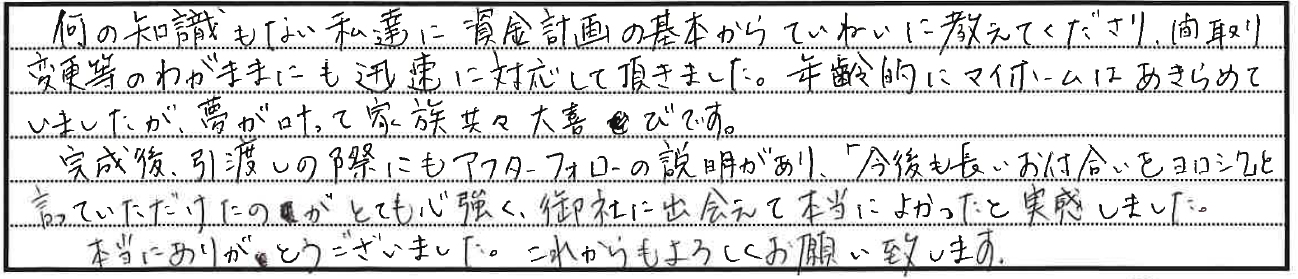 何の知識もない私達に資金計画の基本からていねいに教えてくださり、間取り
変更等のわがままにも迅速に対応して頂きました。年齢的にマイホームはあきらめて
いましたが、夢が叶って家族共々大喜びです。
完成後、引渡しの際にもアフターフォローの説明があり、「今後も長いお付合いをヨロシク」と
言っていただけたのがとても心強く、御社に出会えて本当によかったと実感しました。
本当にありがとうございました。これからもよろしくお願い致します。